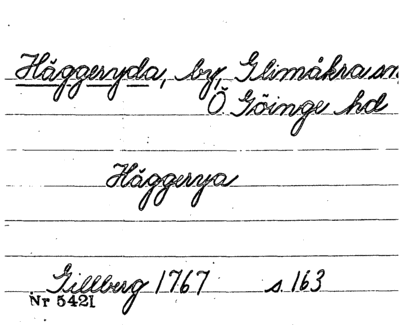 Häggeryda, by, Glimåkra sn.
Ö Göinge hd
Häggerya
Gillberg 1767 s. 163
Nr 5421